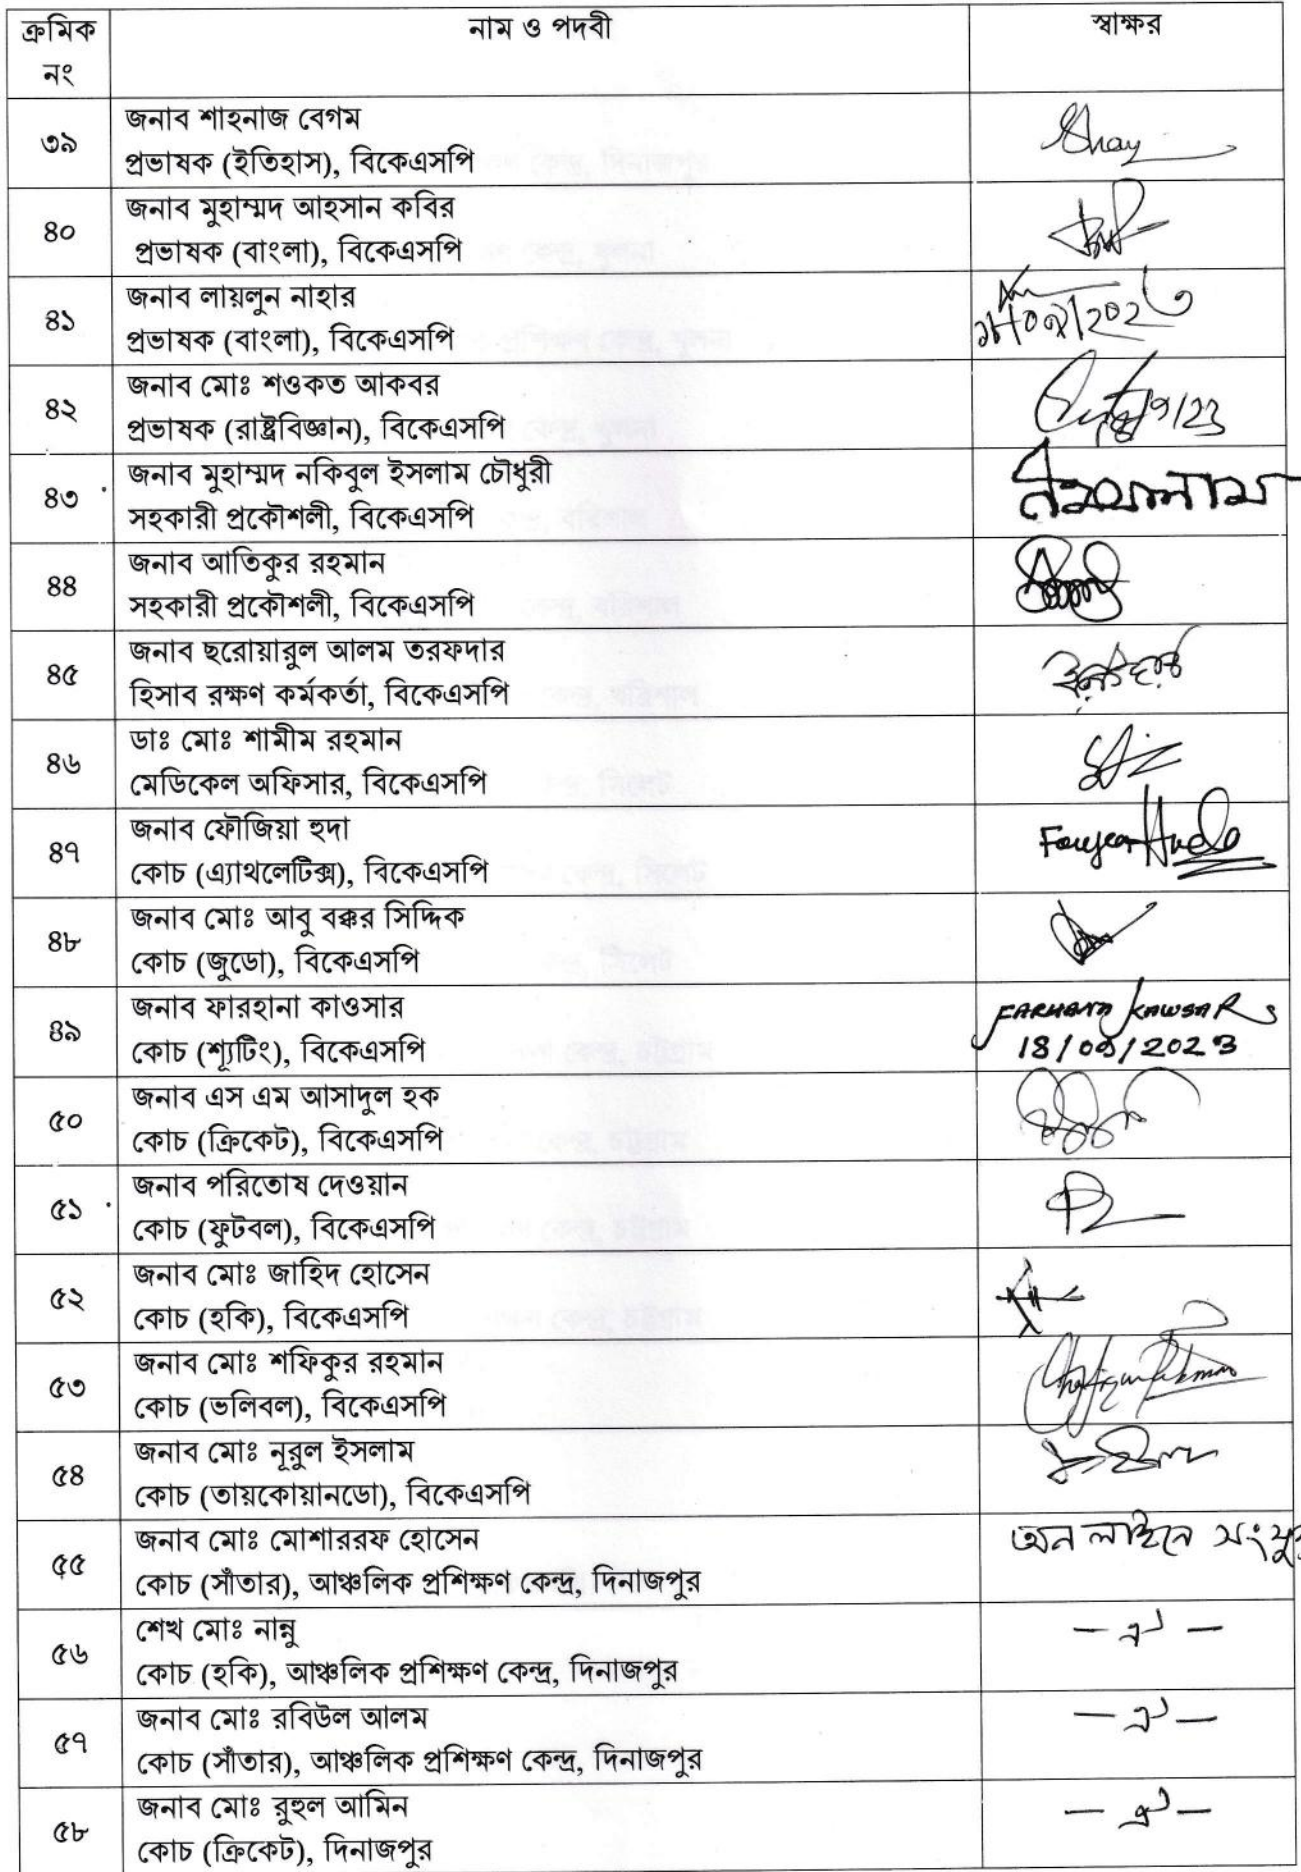 ক্রমিক নং	নাম ও পদবী	স্বাক্ষর
৩৯	জনাব শাহনাজ বেগম
প্রভাষক (ইতিহাস), বিকেএসপি
৪০	জনাব মুহাম্মদ আহসান কবির
প্রভাষক (বাংলা), বিকেএসপি
৪১	জনাব লায়লুন নাহার
প্রভাষক (বাংলা), বিকেএসপি
৪২	জনাব মোঃ শওকত আকবর
প্রভাষক (রাষ্ট্রবিজ্ঞান), বিকেএসপি
৪৩	জনাব মুহাম্মদ নকিবুল ইসলাম চৌধুরী
সহকারী প্রকৌশলী, বিকেএসপি
৪৪	জনাব আতিকুর রহমান
সহকারী প্রকৌশলী, বিকেএসপি
৪৫	জনাব ছরোয়ারুল আলম তরফদার
হিসাব রক্ষণ কর্মকর্তা, বিকেএসপি
৪৬	ডাঃ মোঃ শামীম রহমান
মেডিকেল অফিসার, বিকেএসপি
৪৭	জনাব ফৌজিয়া হুদা
কোচ (এ্যাথলেটিক্স), বিকেএসপি
৪৮	জনাব মোঃ আবু বক্কর সিদ্দিক
কোচ (জুডো), বিকেএসপি
৪৯	জনাব ফারহানা কাওসার	FARHANA KAWSAR
কোচ (শ্যূটিং), বিকেএসপি	18/09/2023
৫০	জনাব এস এম আসাদুল হক
কোচ (ক্রিকেট), বিকেএসপি
৫১	জনাব পরিতোষ দেওয়ান
কোচ (ফুটবল), বিকেএসপি
৫২	জনাব মোঃ জাহিদ হোসেন
কোচ (হকি), বিকেএসপি
৫৩	জনাব মোঃ শফিকুর রহমান
কোচ (ভলিবল), বিকেএসপি
৫৪	জনাব মোঃ নূরুল ইসলাম
কোচ (তায়কোয়ানডো), বিকেএসপি
৫৫	জনাব মোঃ মোশাররফ হোসেন	অন লাইনে
কোচ (সাঁতার), আঞ্চলিক প্রশিক্ষণ কেন্দ্র, দিনাজপুর
৫৬	শেখ মোঃ নান্নু	— ঐ —
কোচ (হকি), আঞ্চলিক প্রশিক্ষণ কেন্দ্র, দিনাজপুর
৫৭	জনাব মোঃ রবিউল আলম	— ঐ —
কোচ (সাঁতার), আঞ্চলিক প্রশিক্ষণ কেন্দ্র, দিনাজপুর
৫৮	জনাব মোঃ রুহুল আমিন	— ঐ —
কোচ (ক্রিকেট), দিনাজপুর